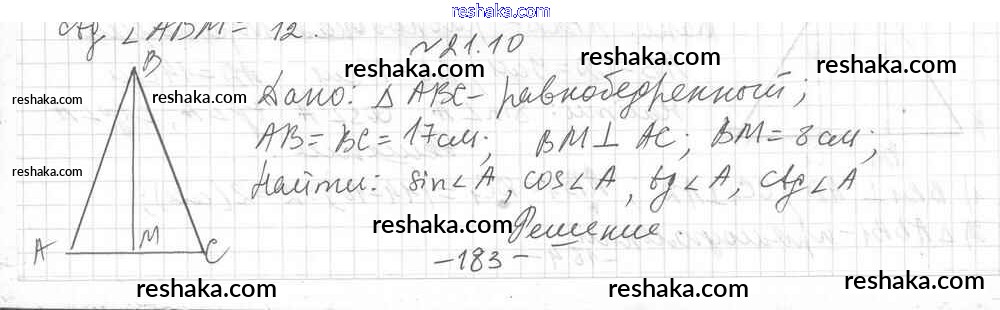 reshaka.com
ctg ∠ABM = 12.
№21.10
B
reshaka.com reshaka.com reshaka.com reshaka.com
Дано: △ ABC – равнобедренный;
reshaka.com
AB = BC = 17см; BM ⊥ AC; BM = 8 см;
reshaka.com reshaka.com
Найти: sin∠A, cos∠A, tg∠A, ctg∠A
reshaka.com reshaka.com
Решение.
A M C
–183–
reshaka.com reshaka.com reshaka.com